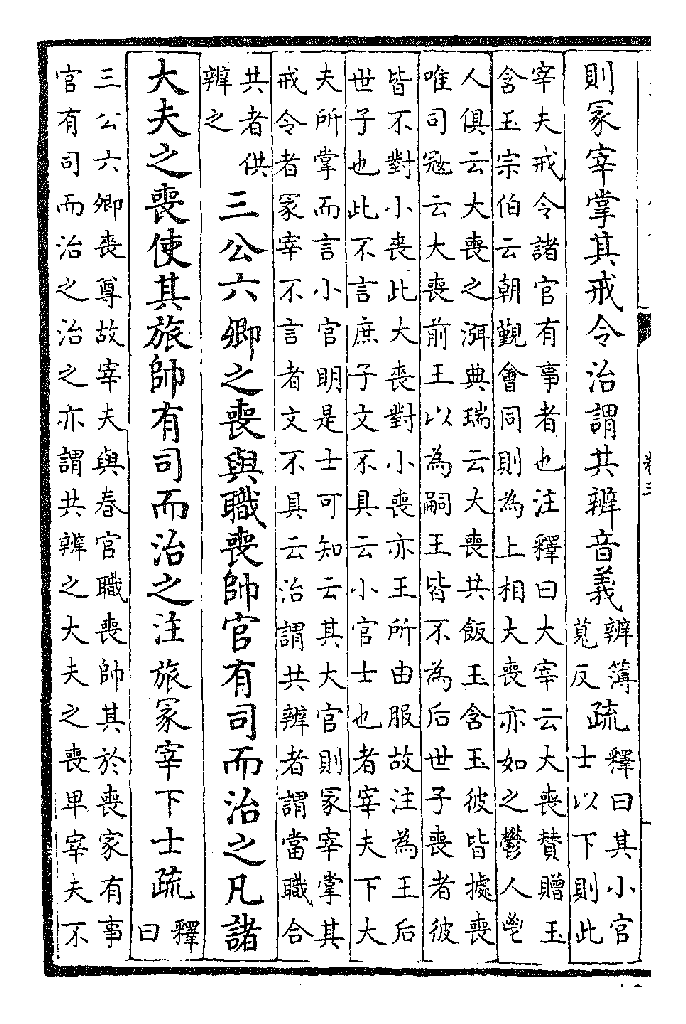 則冢宰掌其戒令治謂其辨音義辨簿莧反疏釋曰其小官士以下則此
宰夫戒令諸官有事者也注釋曰大宰云大喪贊贈玉
含玉宗伯云朝覲會同則為上相大喪亦如之鬱人鬯
人俱云大喪之渳典瑞云大喪共飯玉含玉彼皆據喪
唯司寇云大喪前王以為嗣王皆不為后世子喪者彼
皆不對小喪此大喪對小喪亦王所由服故注為王后
世子也此不言庶子文不具云小官士也者宰夫下大
夫所掌而言小官明是士可知云其大官則冢宰掌其
戒令者冢宰不言者文不具云治謂共辨者謂當職合
共者供辨之三公六卿之喪與職喪帥官有司而治之凡諸
大夫之喪使其旅帥有司而治之注旅冢宰下士疏釋曰
三公六卿喪尊故宰夫與春官職喪帥其於喪家有事
官有司而治之治之亦謂共辨之大夫之喪卑宰夫不